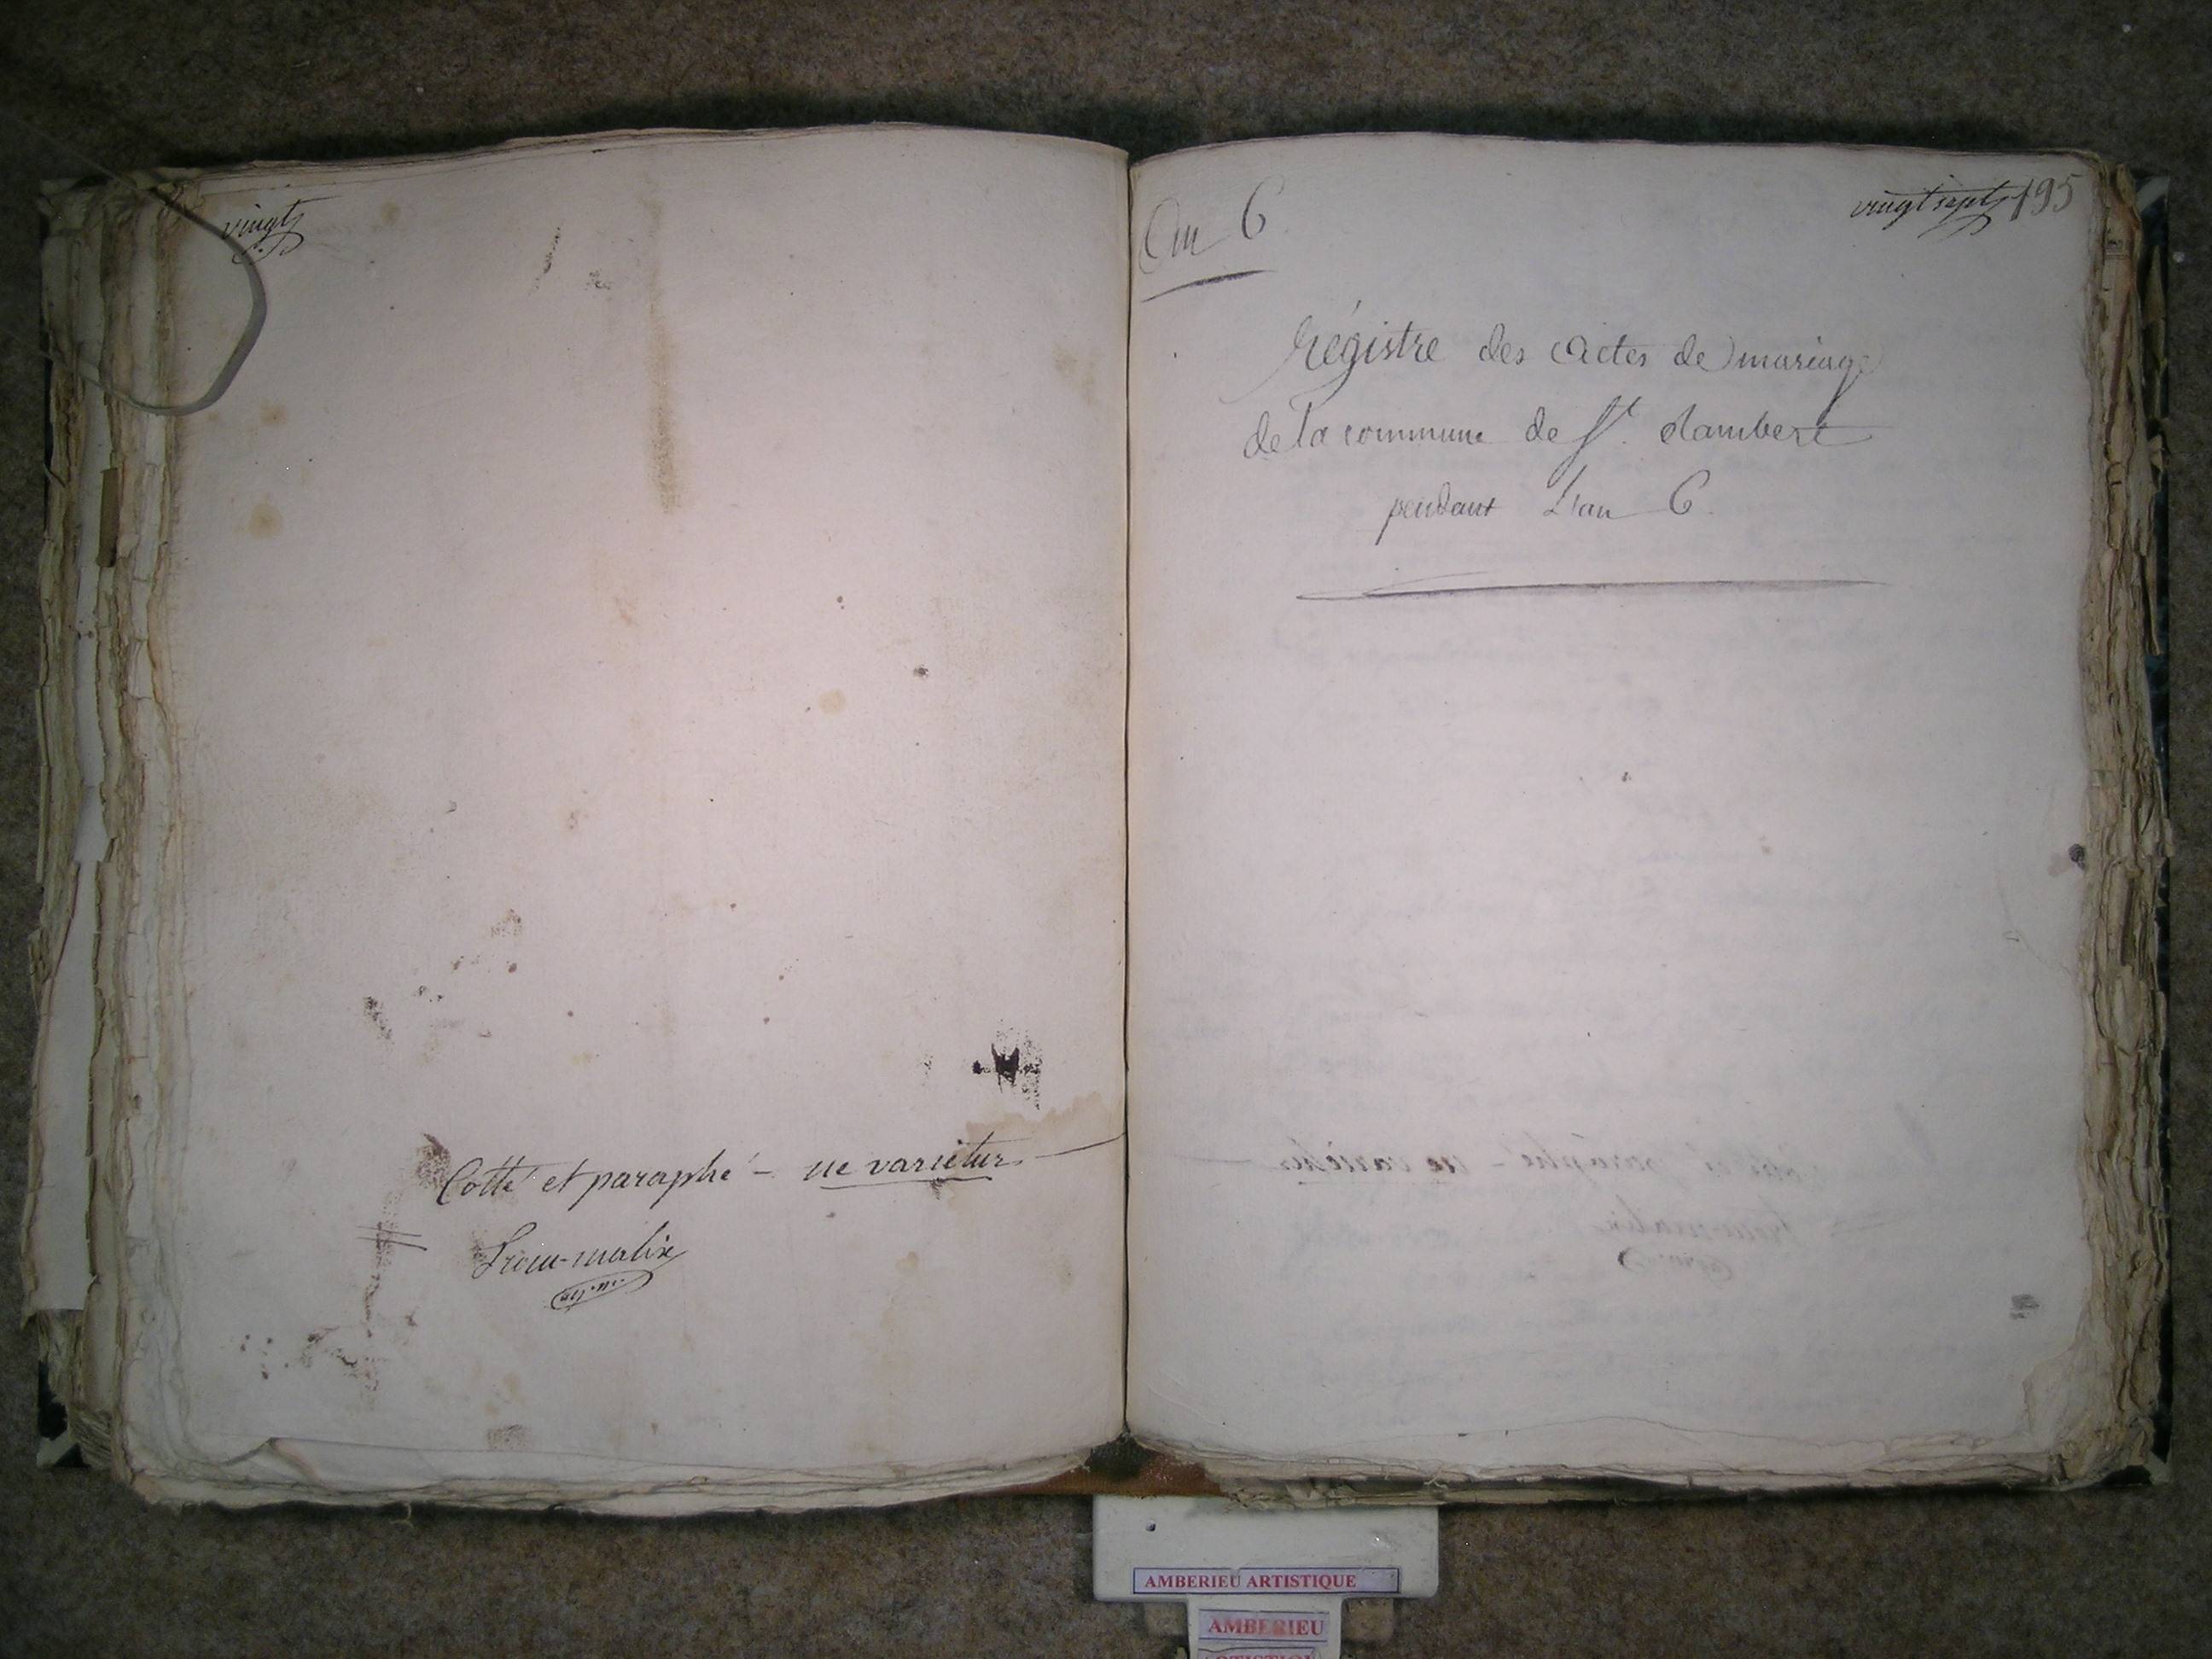 vingt
Cotté et paraphé - ne varietur
An 6
vingt sept 195
Régistre des Actes de mariage
de la commune de St. Lambert
pendant L'an 6.
AMBERIEU ARTISTIQUE
AMBERIEU
ARTISTIQUE